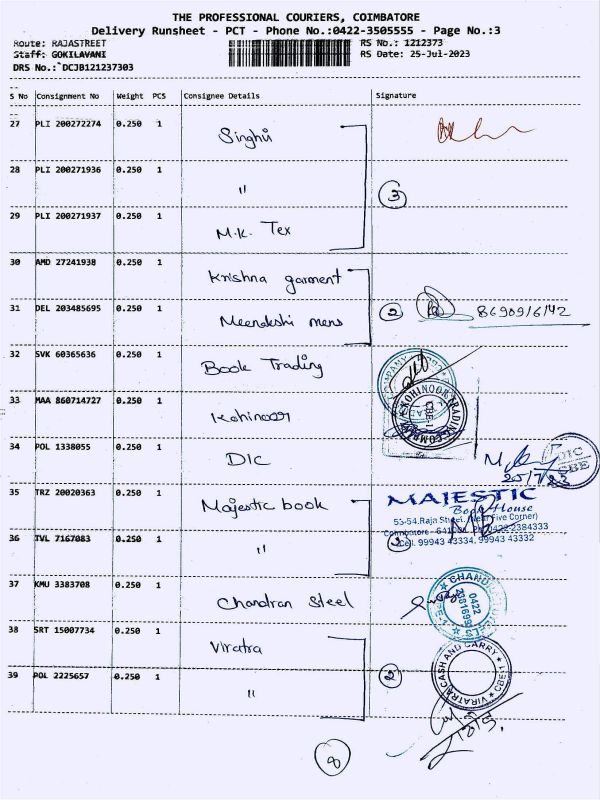 THE PROFESSIONAL COURIERS, COIMBATORE
Delivery Runsheet - PCT - Phone No.:0422-3505555 - Page No.:3
Route: RAJASTREET RS No.: 1212373
Staff: GOKILAVANI RS Date: 25-Jul-2023
DRS No.: DCJB121237303
S No Consignment No Weight PCS Consignee Details Signature
27 PLI 200272274 0.250 1 Singhvi
28 PLI 200271936 0.250 1 " 3
29 PLI 200271937 0.250 1 M.K. Tex
30 AMD 27241938 0.250 1 Krishna garment
31 DEL 203485695 0.250 1 Meenakshi mens 2
32 SVK 60365636 0.250 1 Book Trading
33 MAA 860714727 0.250 1 Kohinoor KOHINOOR TRADING COMPANY CBE-1
34 POL 1338055 0.250 1 DIC DIC CBE
25/7/23
35 TRZ 20020363 0.250 1 Majestic book MAJESTIC
Book House
53-54, Raja Street, (Near Five Corner)
36 TVL 7167083 0.250 1 "
Cell: 99943 43334, 99943 43332
37 KMU 3383708 0.250 1 Chandran Steel 0422
38 SRT 15007734 0.250 1 Viratra VIRATRA CASH AND CARRY
39 POL 2225657 0.250 1 " 2
8